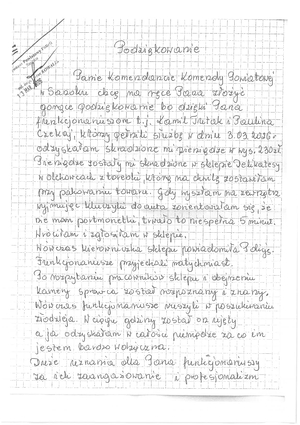 Podziękowanie
Panie Komendancie Komendy Powiatowej
w Sanoku chcę na ręce Pana złożyć
gorące podziękowanie bo dzięki Pana
funkcjonariuszom t.j. Kamil Tutak i Paulina
Czekaj, którzy pełnili służbę w dniu 3.03.2026r
odzyskałam skradzione mi pieniądze w wys. 230zł
Pieniądze zostały mi skradzione w sklepie Delikatesy
w Olchowcach z torebki, którą na chwilę zostawiłam
przy pakowaniu towaru. Gdy wyszłam na zewnątrz
wyjmując kluczyki do auta zorientowałam się, że
nie mam portmonetki, trwało to niespełna 5 minut.
Wróciłam i zgłosiłam w sklepie.
Wówczas kierowniczka sklepu powiadomiła Policję.
Funkcjonariusze przyjechali natychmiast.
Po rozpytaniu pracowników sklepu i obejrzeniu
kamery sprawca został rozpoznany i znany.
Wówczas funkcjonariusze ruszyli w poszukiwaniu
złodzieja. W ciągu godziny został on ujęty
a ja odzyskałam w całości pieniądze za co im
jestem bardzo wdzięczna.
Duże uznania dla Pana funkcjonariuszy
za ich zaangażowanie i profesjonalizm